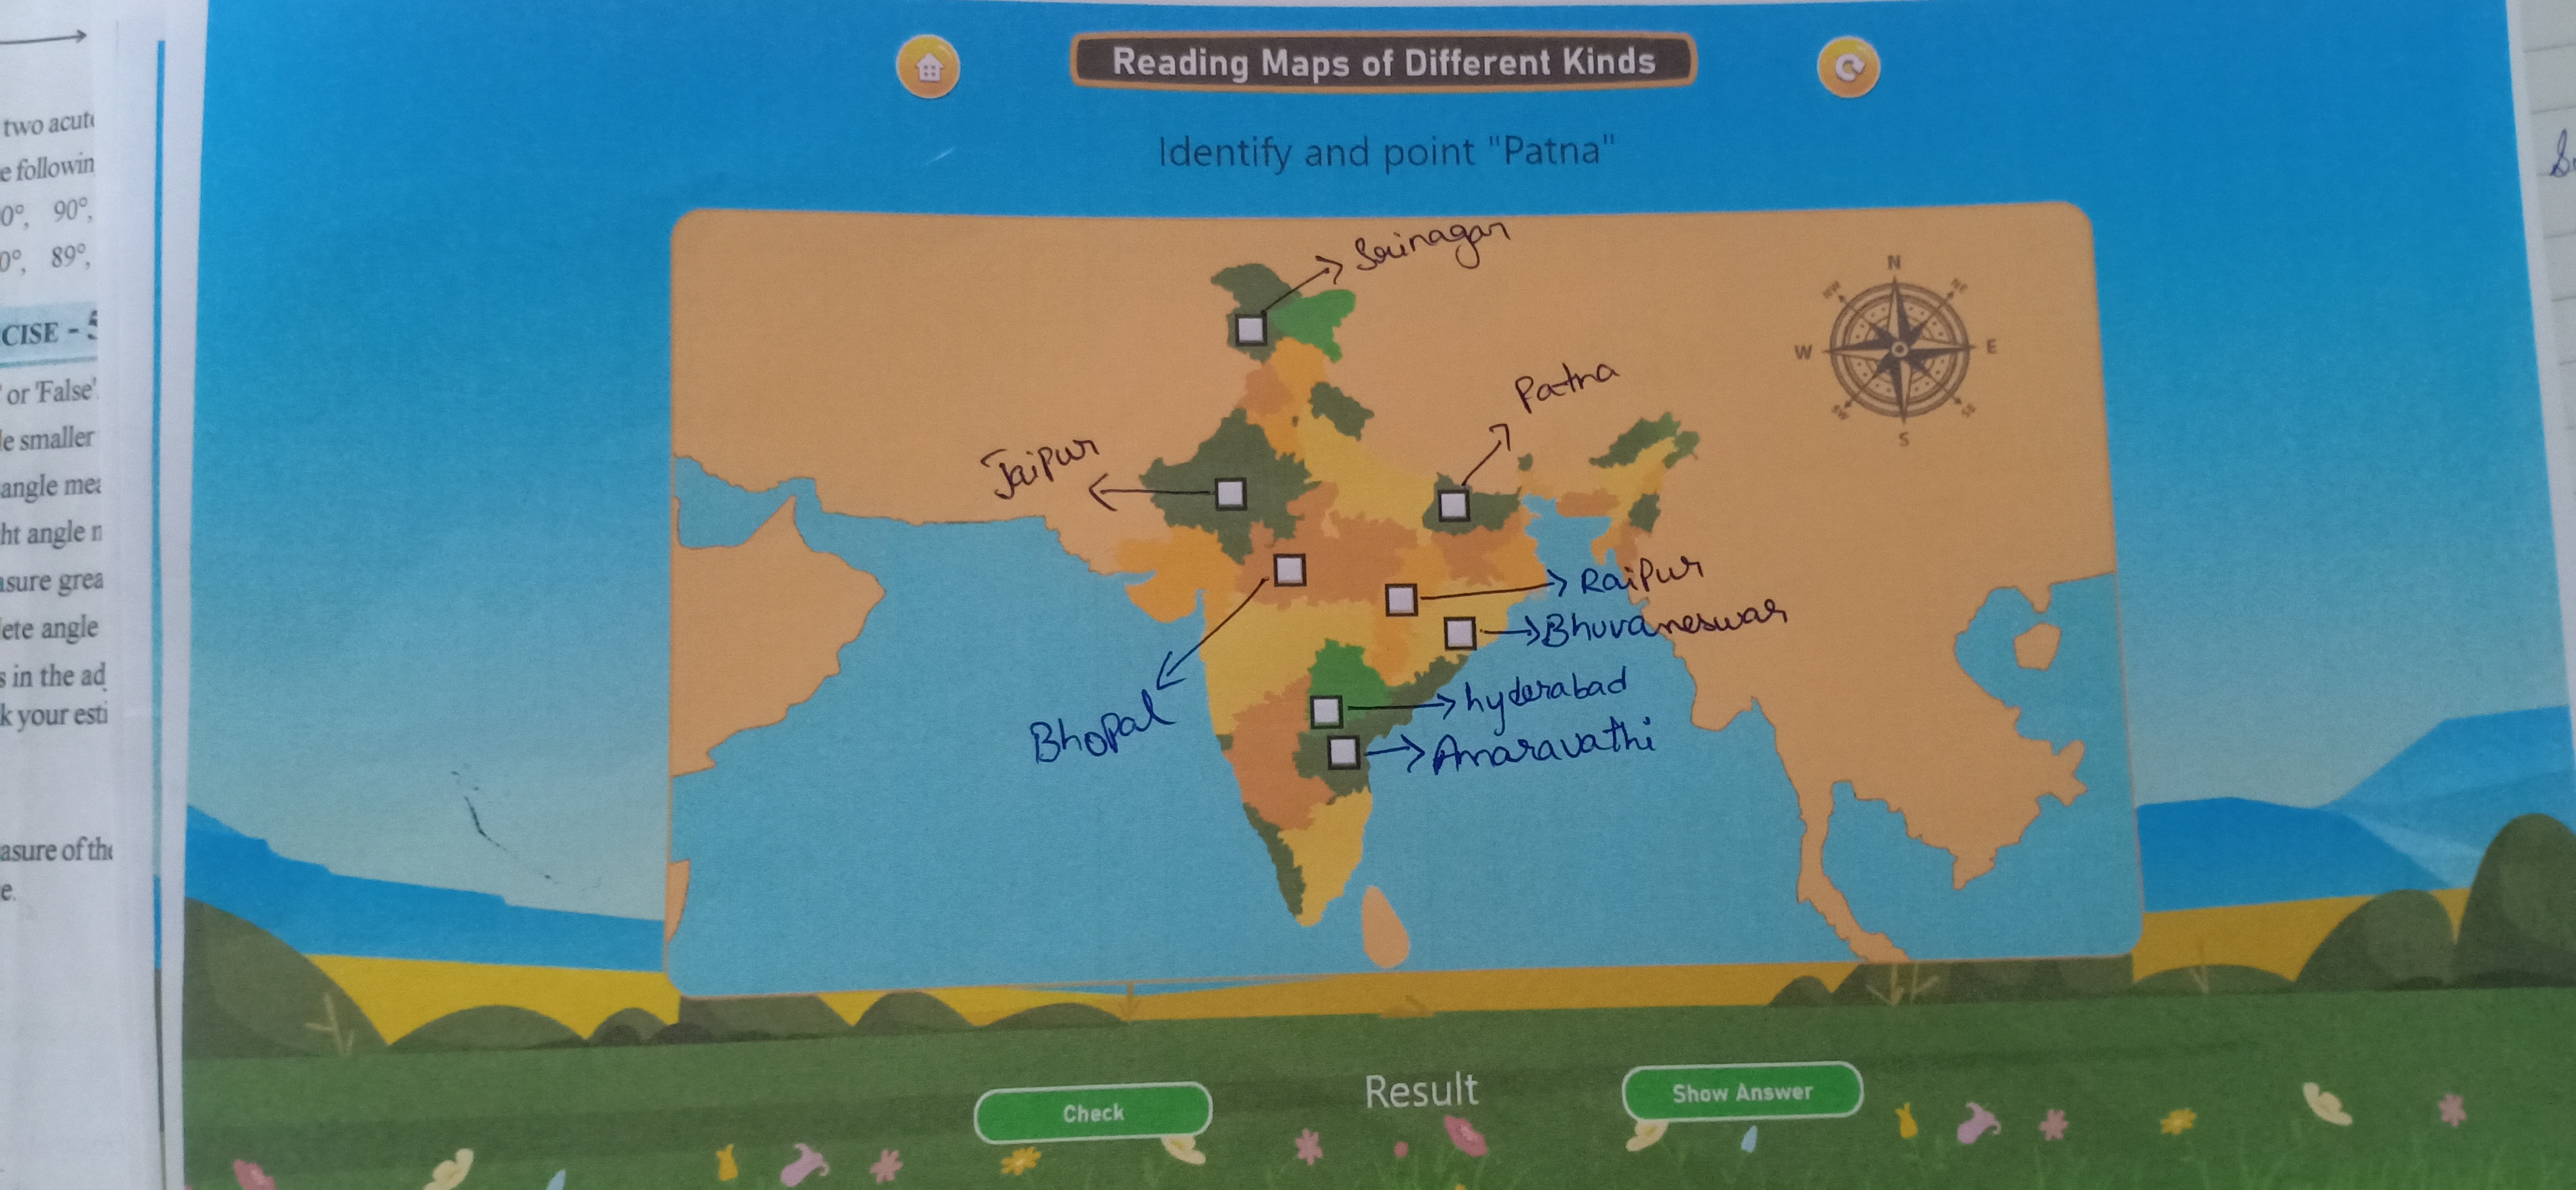 two acut
e followin
0°, 90°,
0°, 89°,
CISE - 5
' or 'False'.
le smaller
angle mea
ht angle n
asure grea
lete angle
s in the ad
k your esti
asure of the
e.
Reading Maps of Different Kinds
Identify and point "Patna"
Srinagar
N
NW
NE
W
E
SW
SE
S
Patna
Jaipur
Raipur
Bhuvaneswar
Bhopal
hyderabad
Amaravathi
Check
Result
Show Answer